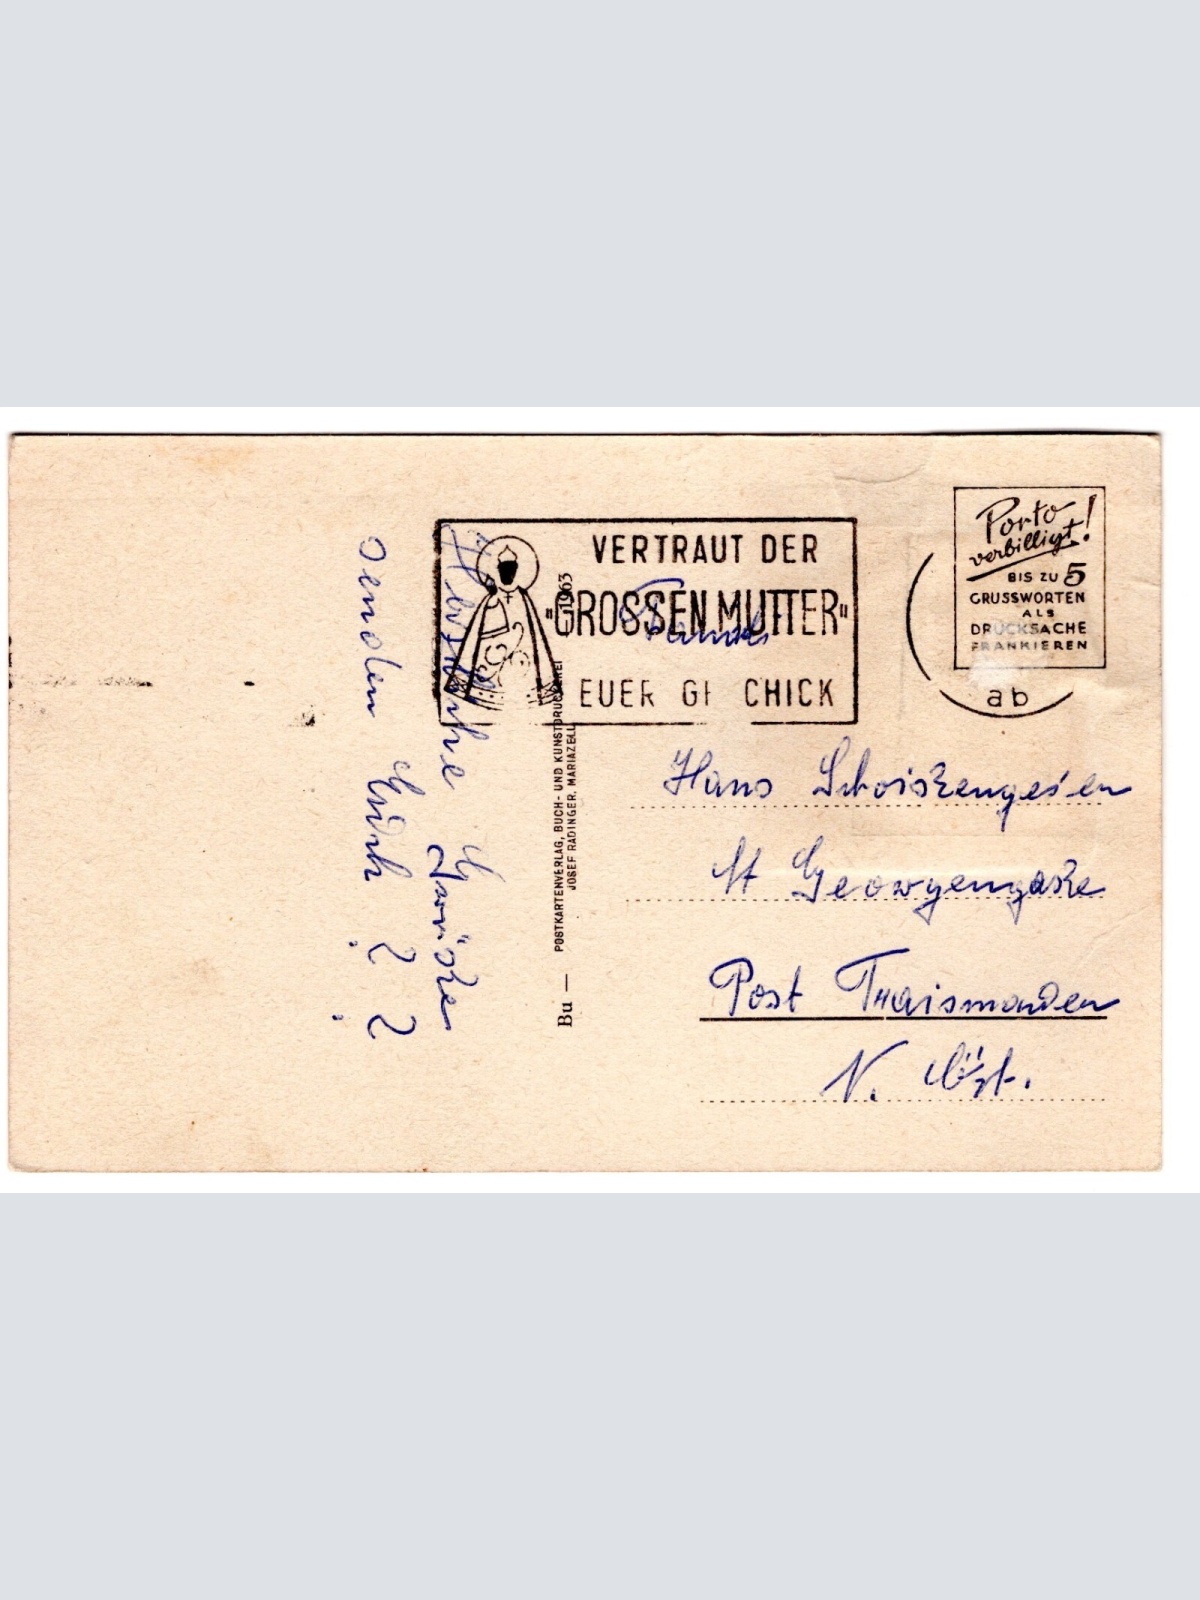 Herzliche
Grüsse
senden Euch
? ?
VERTRAUT DER
"GROSSEN MUTTER"
EUER GE CHICK
Porto
verbilligt!
BIS ZU 5
GRUSSWORTEN
ALS
DRUCKSACHE
FRANKIEREN
ab
Bu — POSTKARTENVERLAG, BUCH- UND KUNSTDRUCKEREI
JOSEF RADINGER, MARIAZELL
1963
Familie
Hans
St Georgengasse
Post Traismauer
N. Öst.